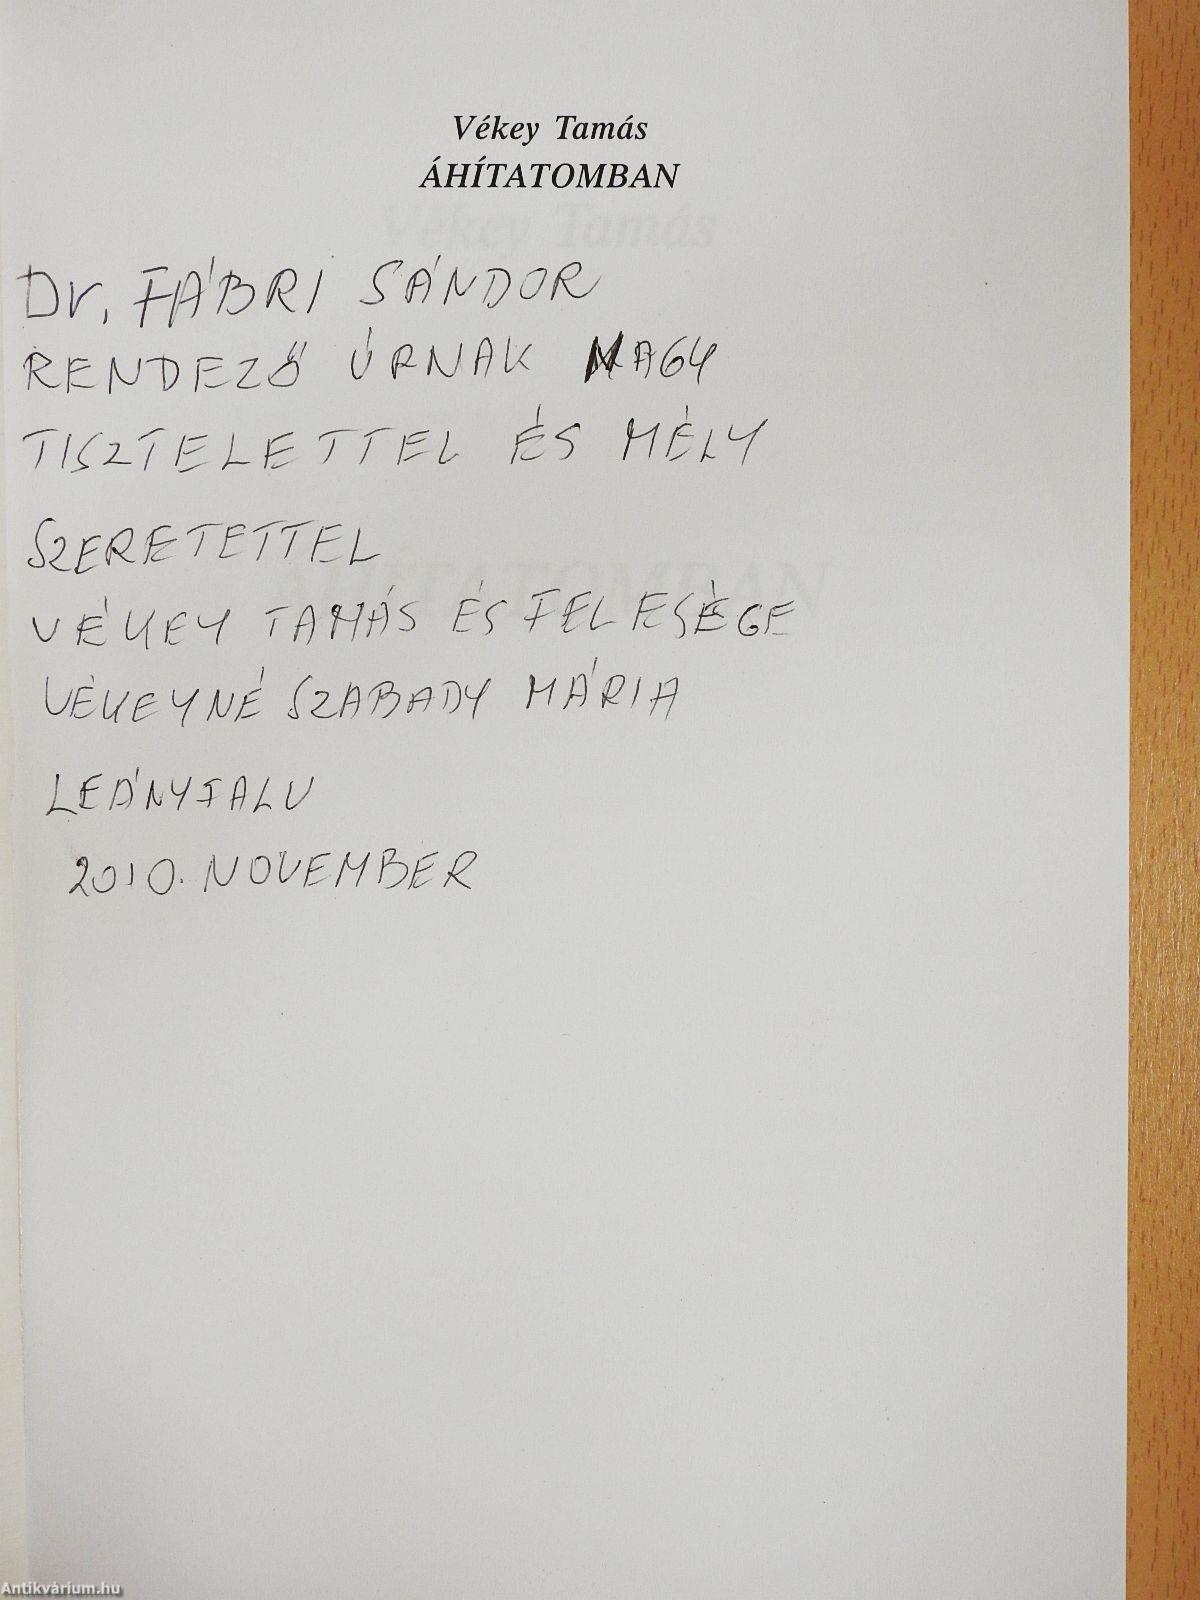 Vékey Tamás
ÁHÍTATOMBAN
Vékey Tamás
Dr, FÁBRI SÁNDOR
RENDEZŐ ÚRNAK NAGY
TISZTELETTEL ÉS MÉLY
SZERETETTEL
ÁHÍTATOMBAN
VÉKEY TAMÁS ÉS FELESÉGE
VÉKEYNÉ SZABADY MÁRIA
LEÁNYFALU
2010. NOVEMBER
Antikvárium.hu